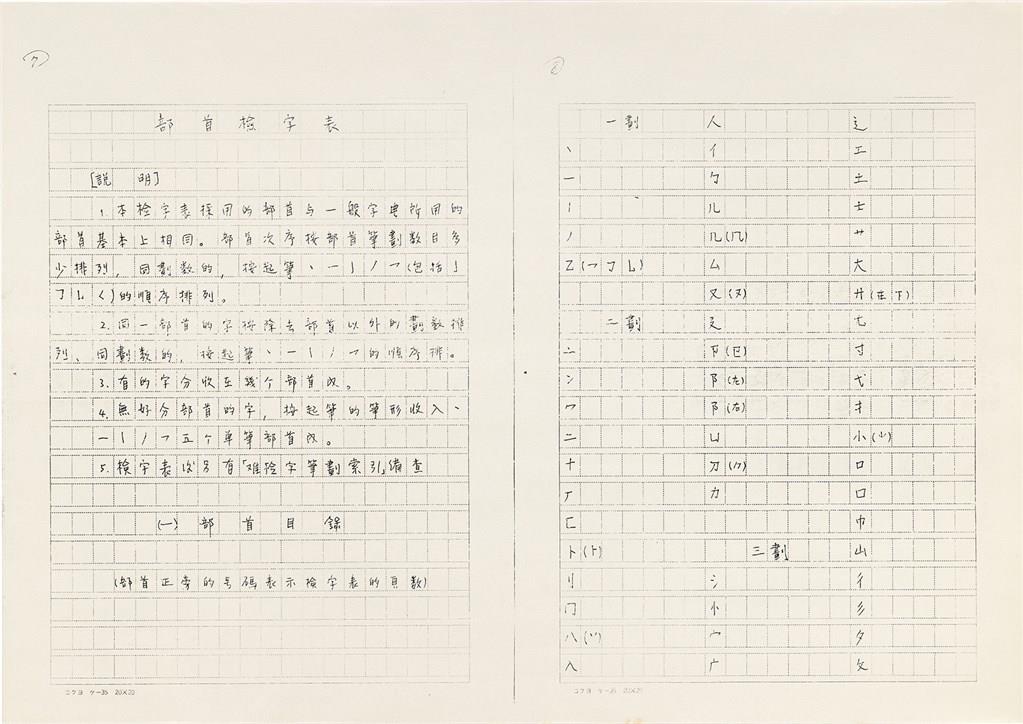 7
部首檢字表
[説明]
1. 本检字表採用的部首与一般字典所用的
部首基本上相同。部首次序按部首筆劃數目多
少排列，同劃數的，按起筆丶一丨丿㇕(包括亅
㇆㇄く)的順序排列。
2. 同一部首的字按除去部首以外的劃數排
列、同劃數的，按起筆丶一丨丿㇕的順序排。
3. 有的字分收在幾个部首内。
4. 無好分部首的字，按起筆的筆形收入丶
一丨丿㇕五个单筆部首内。
5. 檢字表後另有「难检字筆劃索引」備查
(一) 部首目録
(部首正旁的号碼表示檢字表的頁數)
コクヨ ケー35 20×20
8
一劃
丶
一
丨
丿
乙(㇕㇆乚)
二劃
亠
冫
冖
二
十
厂
匚
卜(⺊)
刂
冂
八(丷)
入
人
亻
勹
儿
几(𠘨)
厶
又(ヌ)
廴
卩(㔾)
阝(左)
阝(右)
凵
刀(⺈)
力
三劃
氵
忄
宀
广
辶
工
土
士
艹
大
廾(在下)
尢
寸
弋
扌
小(⺌)
口
囗
巾
山
彳
彡
夕
夂
コクヨ ケー35 20×20